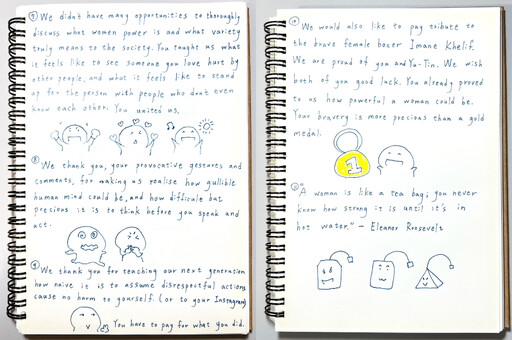 ⑦ We didn't have many opportunities to thoroughly
discuss what women power is and what variety
truly means to the society. You taught us what
it feels like to see someone you love hurt by
other people, and what it feels like to stand
up for the person with people who don't even
know each other. You united us.
⑧ We thank you, your provocative gestures and
comments, for making us realise how gullible
human mind could be, and how difficule but
precious it is to think before you speak and
act.
⑨ We thank you for teaching our next generation
how naive it is to assume disrespectful actions
cause no harm to yourself. (or to your Instagram)
You have to pay for what you did.
We would also like to pay tribute to
the brave female boxer Imane Khelif.
We are proud of you and Yu-Tin. We wish
both of you good luck. You already proved
to us how powerful a woman could be.
Your bravery is more precious than a gold
medal.
1
"A woman is like a tea bag; you never
know how strong it is until it's in
hot water." - Eleanor Roosevelt